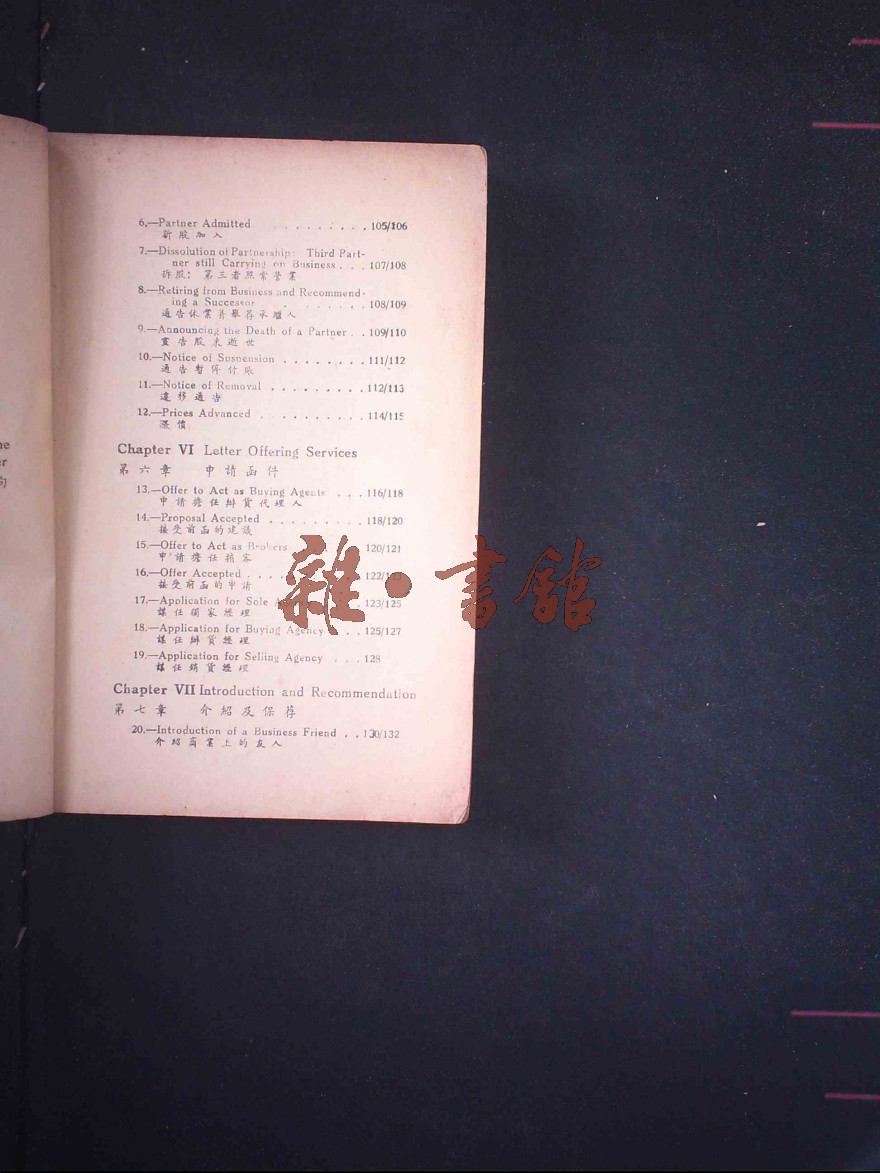 6.—Partner Admitted . . . . . . . . . 105/106
新股加入
7.—Dissolution of Partnership: Third Part-
ner still Carrying on Business . . . 107/108
拆股：第三者照常營業
8.—Retiring from Business and Recommend-
ing a Successor . . . . . . . . 108/109
通告休業并舉荐承繼人
9.—Announcing the Death of a Partner . . 109/110
宣告股東逝世
10.—Notice of Suspension . . . . . . . . 111/112
通告暫停付賬
11.—Notice of Removal . . . . . . . . . 112/113
遷移通告
12.—Prices Advanced . . . . . . . . . . 114/115
漲價
Chapter VI Letter Offering Services
第六章 申請函件
13.—Offer to Act as Buying Agents . . . 116/118
申請擔任辦貨代理人
14.—Proposal Accepted . . . . . . . . . 118/120
接受前函的建議
15.—Offer to Act as Brokers 120/121
申請擔任掮客
16.—Offer Accepted . . . . 122/123
接受前函的申請
17.—Application for Sole 123/125
謀任獨家經理
18.—Application for Buying Agency . . . 125/127
謀任辦貨經理
19.—Application for Selling Agency . . . 128
謀任銷貨經理
Chapter VII Introduction and Recommendation
第七章 介紹及保荐
20.—Introduction of a Business Friend . . 130/132
介紹商業上的友人
雜·書館